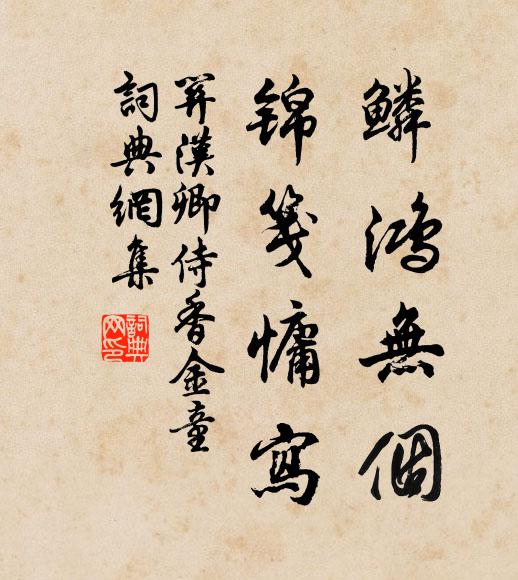 鱗鴻無個
錦箋慵寫
關漢卿侍香金童
詞典網集
詞典網印